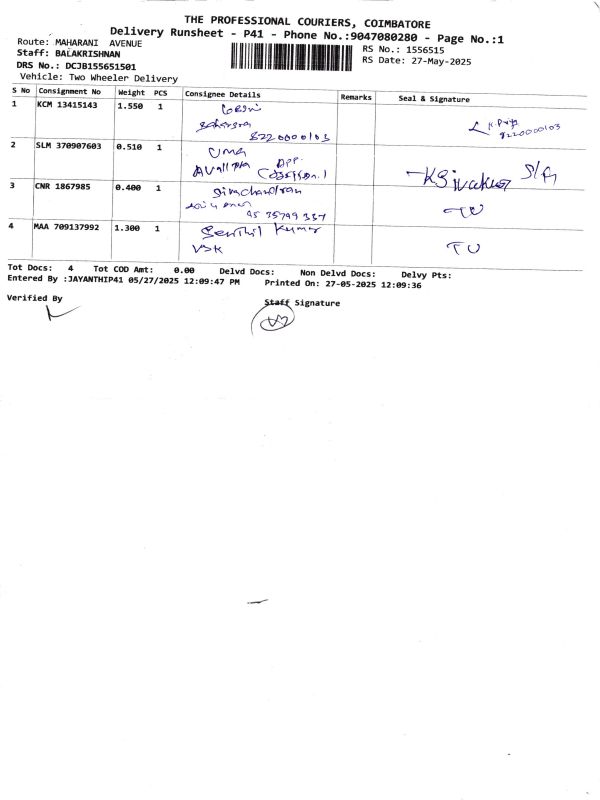 THE PROFESSIONAL COURIERS, COIMBATORE
Delivery Runsheet - P41 - Phone No.:9047080280 - Page No.:1
Route: MAHARANI AVENUE
Staff: BALAKRISHNAN
DRS No.: DCJB155651501
Vehicle: Two Wheeler Delivery
RS No.: 1556515
RS Date: 27-May-2025
S No Consignment No Weight PCS Consignee Details Remarks Seal & Signature
1 KCM 13415143 1.550 1
8220000103
8220000103
2 SLM 370907603 0.510 1 Uma
3 CNR 1867985 0.400 1 Sivachandran
95 35799 337
TU
4 MAA 709137992 1.300 1 Senthil Kumar
VSK TU
Tot Docs: 4 Tot COD Amt: 0.00 Delvd Docs: Non Delvd Docs: Delvy Pts:
Entered By :JAYANTHIP41 05/27/2025 12:09:47 PM Printed On: 27-05-2025 12:09:36
Verified By Staff Signature